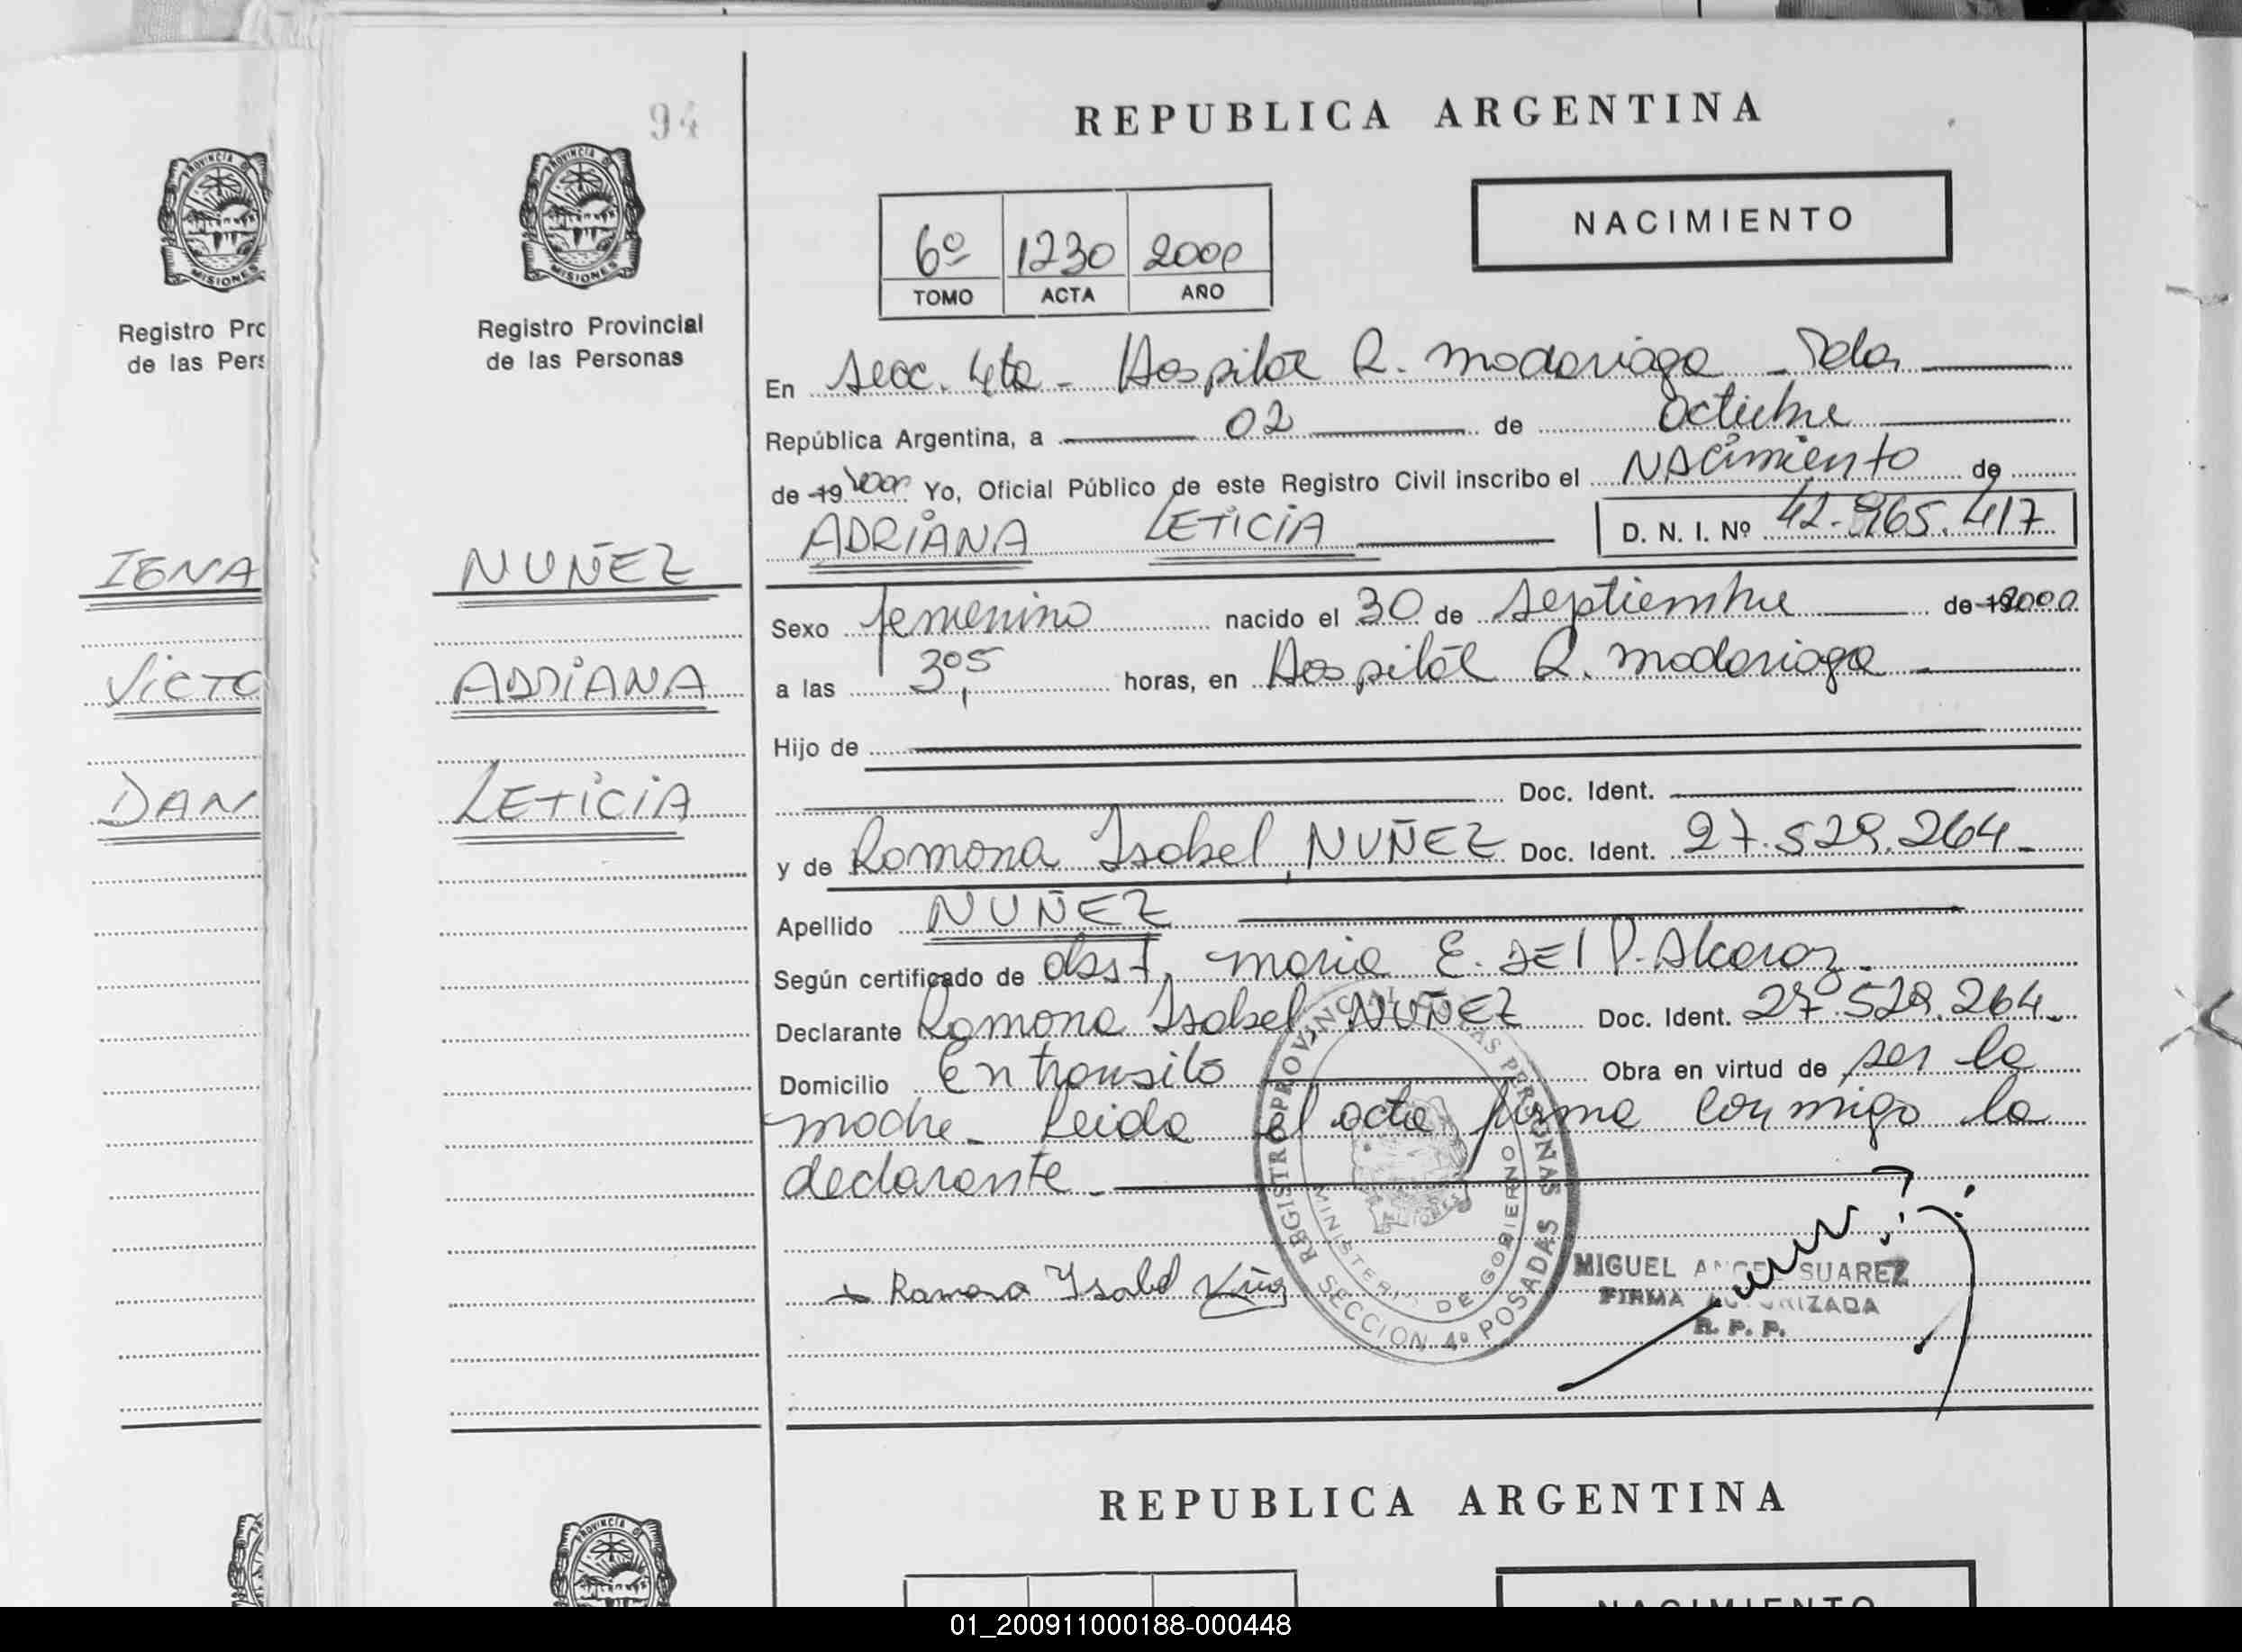 94
REPUBLICA ARGENTINA
PROVINCIA D
MISIONES
Registro Pro
de las Pers
PROVINCIA D
MISIONES
Registro Provincial
de las Personas
NACIMIENTO
6º 1230 2000
TOMO ACTA AÑO
En Secc. 4ta - Hospital R. Madariaga - Pdas
República Argentina, a 02 de Octubre
de 19 2000 Yo, Oficial Público de este Registro Civil inscribo el NACimiento de
ADRiANA LETiCiA D. N. I. Nº 42.965.417
IGNA
NUÑEZ
Sexo femenino nacido el 30 de Septiembre de 19 2000
VicTO
ADRiANA
a las 3,05 horas, en Hospital R. Madariaga -
Hijo de
DAN
LETiCiA
Doc. Ident.
y de Ramona Isabel, NUÑEZ Doc. Ident. 27.529.264-
Apellido NUÑEZ
Según certificado de obst. Maria E. DEl P. Alcaraz-
Declarante Ramona Isabel, NUÑEZ Doc. Ident. 27.529.264-
Domicilio En transito Obra en virtud de ser la
madre- Leida el acta firma conmigo la
declarante-
REGISTRO PROVINCIAL DE LAS PERSONAS
MINISTERIO DE GOBIERNO
SECCION 4º POSADAS
Ramona Ysabel Nuñez
MIGUEL ANGEL SUAREZ
FIRMA AUTORIZADA
R. P. P.
REPUBLICA ARGENTINA
PROVINCIA D
NACIMIENTO
01_200911000188-000448